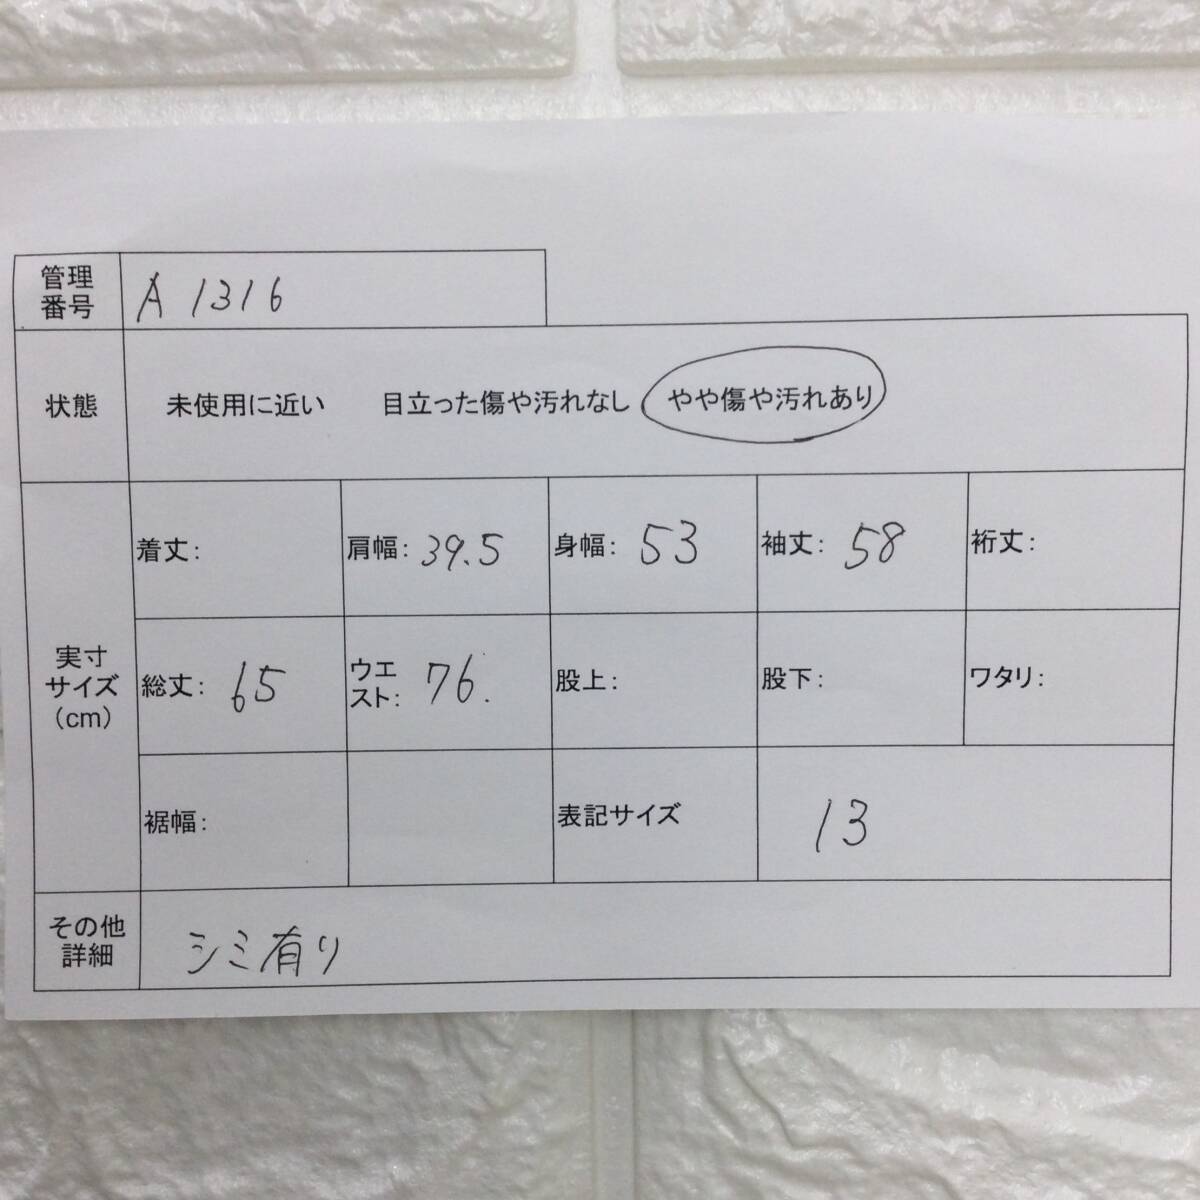 管理
番号
A 1316
状態
未使用に近い 目立った傷や汚れなし やや傷や汚れあり
実寸
サイズ
(cm)
着丈:
肩幅: 39.5
身幅: 53
袖丈: 58
裄丈:
総丈: 65
ウエ
スト: 76.
股上:
股下:
ワタリ:
裾幅:
表記サイズ
13
その他
詳細
シミ有り